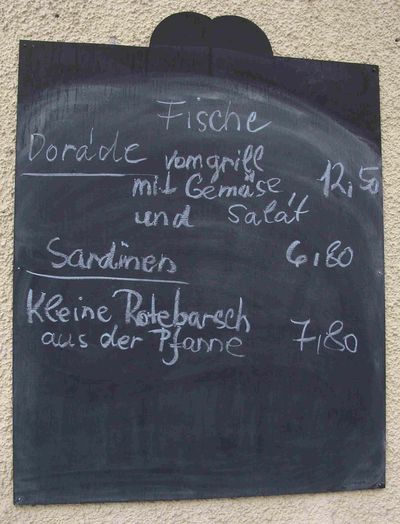 Fische
Dorade vom grill 12,50
mit Gemäse,
und Salat
Sardinen 6,80
Kleine Rotebarsch
aus der Pfanne 7,80